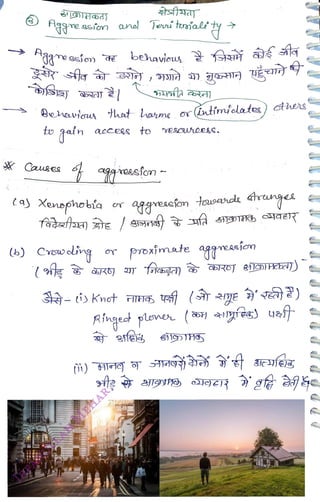 आक्रामकता क्षेत्रीयता
④ Aggression and Territoriality →
→ Aggression वह behaviour है जिसमें कोई जीव
दूसरे जीव को डराने, भगाने या नुकसान पहुंचाने की
कोशिश करता है। भयभीत करना
→ Behaviour that harms or Intimidates others
to gain access to resources.
* Causes of aggression -
(a) Xenophobia or aggression towards stranges
विदेशीयता द्रोह / अजनबी के प्रति आक्रामक व्यवहार
(b) Crowding or proximate aggression
(भीड़ के कारण या निकटता के कारण आक्रामकता) -
जैसे - (i) Knot नामक पक्षी (जो समूह में रहती है)
Ringed plover (कम सामूहिक) पक्षी
से अधिक आक्रामक
(ii) मानव व जानवरों दोनों में ही अत्यधिक
भीड़ से आक्रामक व्यवहार में वृद्धि होती है